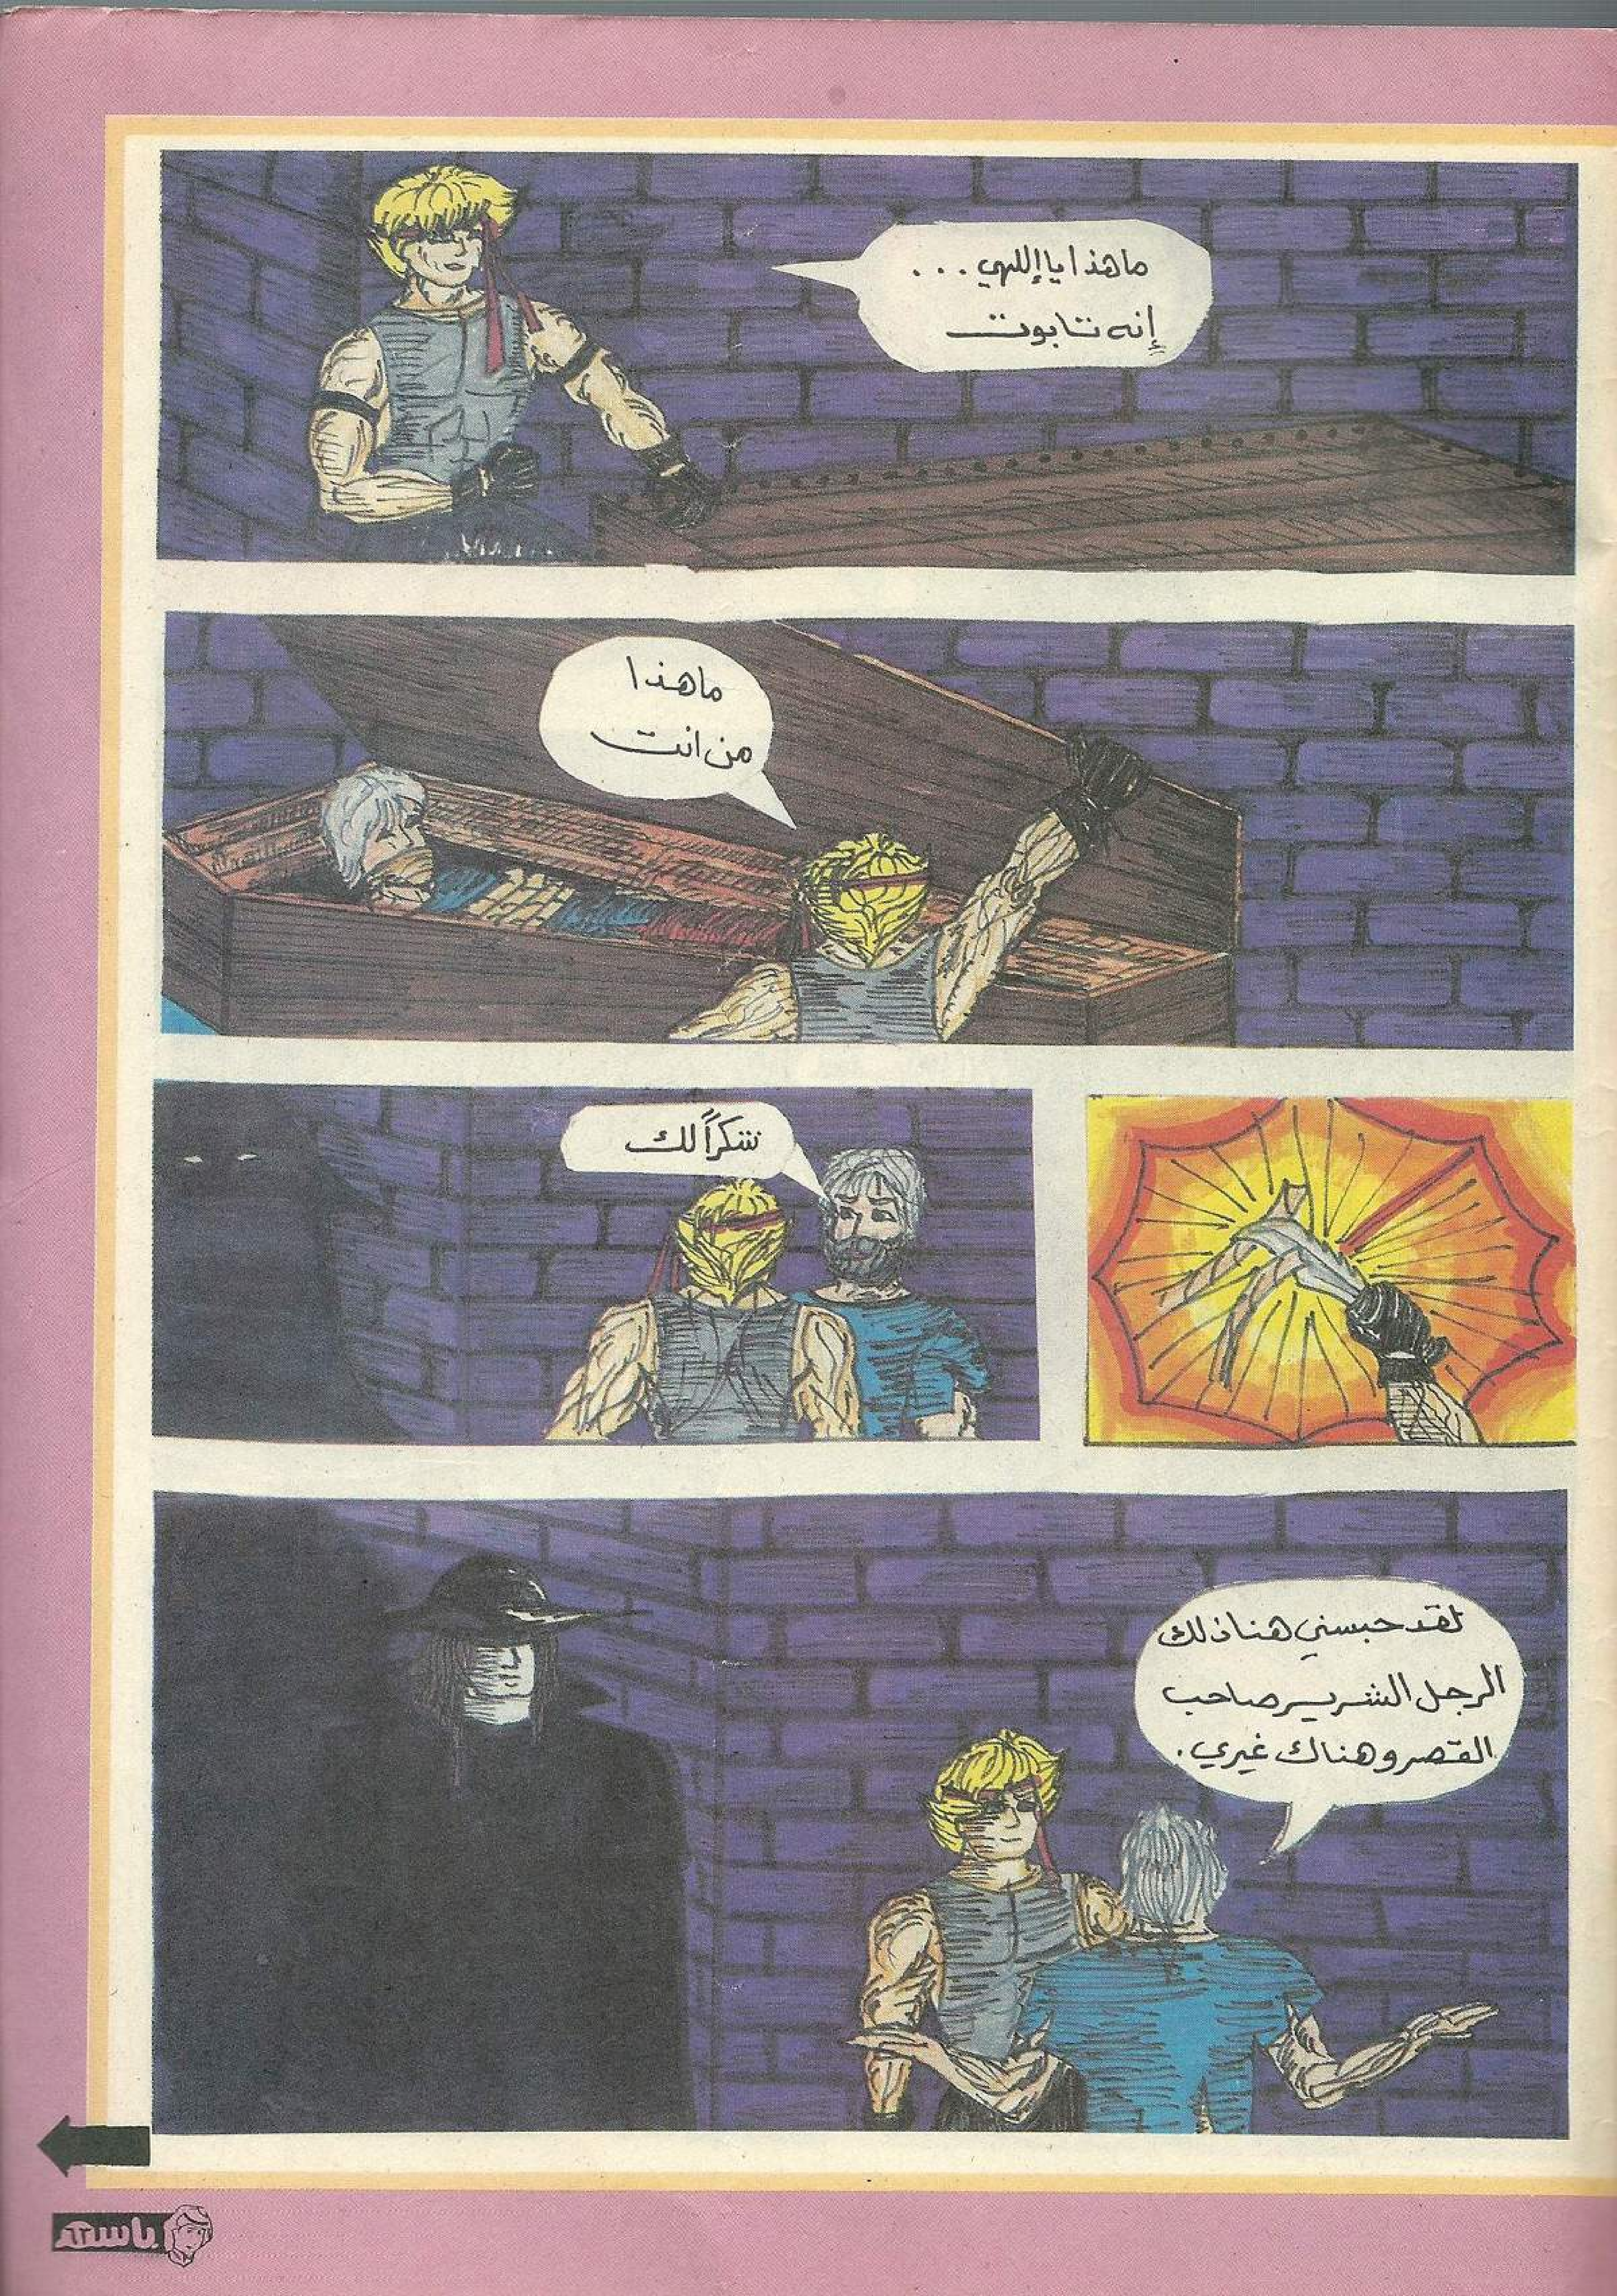 ما هذا يا إللهي...
إنه تابوت
ما هذا
من انت
شكراً لك
لقد حبسني هنا ذلك
الرجل الشرير صاحب
القصر وهناك غيري.
باسم